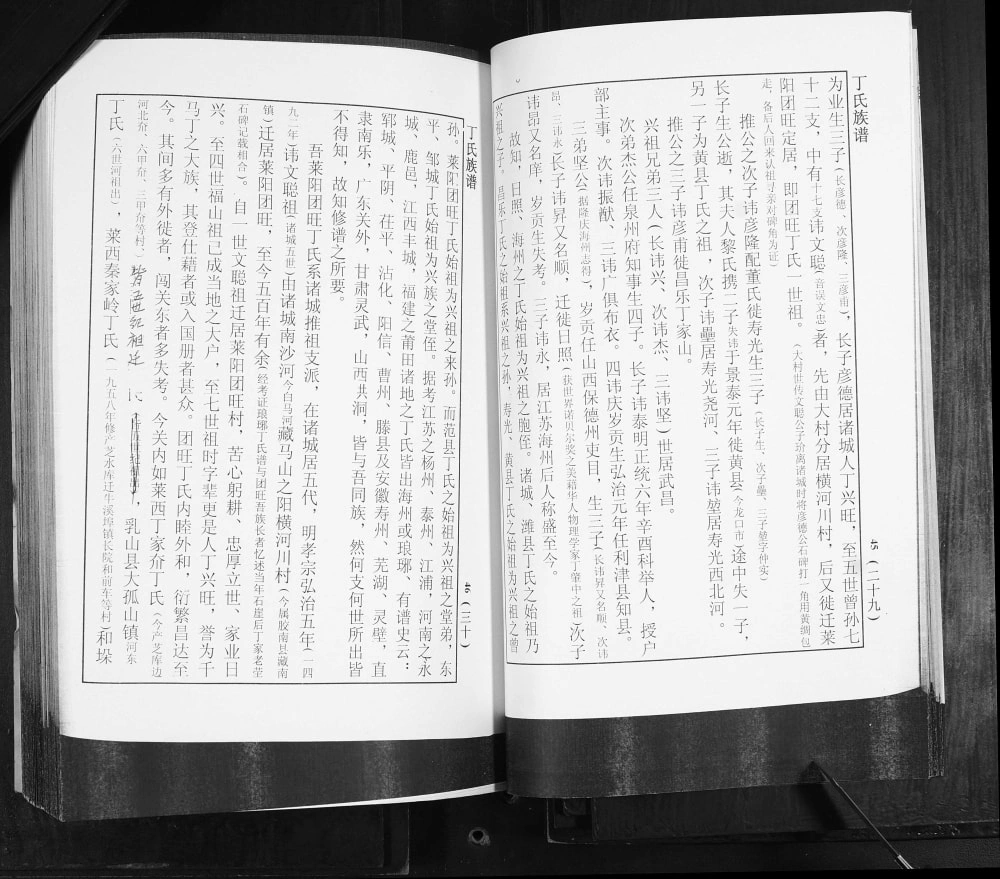 丁氏族谱
45（二十九）
为业生三子（长彦德、次彦隆、三彦甫），长子彦德居诸城人丁兴旺，至五世曾孙七
十二支，中有十七支讳文聪（音误文忠）者，先由大村分居横河川村，后又徙迁莱
阳团旺定居，即团旺丁氏一世祖。（大村世传文聪公子玠离诸城时将彦德公石碑打一角用黄绸包
走，备后人回来认祖寻亲对碑角为证）
推公之次子讳彦隆配董氏徙寿光生三子（长子生、次子壘、三子堃字仲实）
长子生公逝，其夫人黎氏携二子失讳于景泰元年徙黄县今龙口市途中失一子，
另一子为黄县丁氏之祖，次子讳壘居寿光尧河、三子讳堃居寿光西北河。
推公之三子讳彦甫徙昌乐丁家山。
兴祖兄弟三人（长讳兴、次讳杰、三讳坚）世居武昌。
次弟杰公任泉州府知事生四子。长子讳泰明正统六年辛酉科举人，授户
部主事。次讳振猷、三讳广俱布衣。四讳庆岁贡生弘治元年任利津县知县。
三弟坚公（据隆庆海州志得），岁贡任山西保德州吏目，生三子（长讳昇又名顺、次讳
昂、三讳永）长子讳昇又名顺，迁徙日照（获世界诺贝尔奖之美籍华人物理学家丁肇中之祖）次子
讳昂又名庠，岁贡生失考。三子讳永，居江苏海州后人称盛至今。
故知，日照、海州之丁氏始祖为兴祖之胞侄。诸城、潍县丁氏之始祖乃
兴祖之子。昌乐丁氏之始祖系兴祖之孙，寿光、黄县丁氏之始祖为兴祖之曾
丁氏族谱
46（三十）
孙。莱阳团旺丁氏始祖为兴祖之来孙。而范县丁氏之始祖为兴祖之堂弟，东
平、邹城丁氏始祖为兴族之堂侄。据考江苏之杨州、泰州、江浦，河南之永
城、鹿邑，江西丰城，福建之莆田诸地之丁氏皆出海州或琅琊、有谱史云：
郓城、平阴、茌平、沾化、阳信、曹州、滕县及安徽寿州、芜湖、灵壁，直
隶南乐，广东关外，甘肃灵武，山西洪洞，皆与吾同族，然何支何世所出皆
不得知，故知修谱之所要。
吾莱阳团旺丁氏系诸城推祖支派，在诸城居五代，明孝宗弘治五年（一四
九二年）讳文聪祖（诸城五世）由诸城南沙河今白马河藏马山之阳横河川村（今属胶南县藏南
镇）迁居莱阳团旺，至今五百年有余（经考证琅琊丁氏谱与团旺吾族长者忆述当年石崖后丁家老茔
石碑记载相合）。自一世文聪祖迁居莱阳团旺村，苦心躬耕、忠厚立世、家业日
兴。至四世福山祖已成当地之大户，至七世祖时字辈更是人丁兴旺，誉为千
马丁之大族，其登仕藉者或入国册者甚众。团旺丁氏内睦外和，衍繁昌达至
今。其间多有外徙者，闯关东者多失考。今关内如莱西丁家夼丁氏（今产芝库边
河北夼、六甲夼、三甲夼等村）皆五世纪祖迁，乳山县大孤山镇河东
丁氏（六世河祖出），莱西秦家岭丁氏（一九五八年修产芝水库迁牛溪埠镇长院和前车等村）和垛